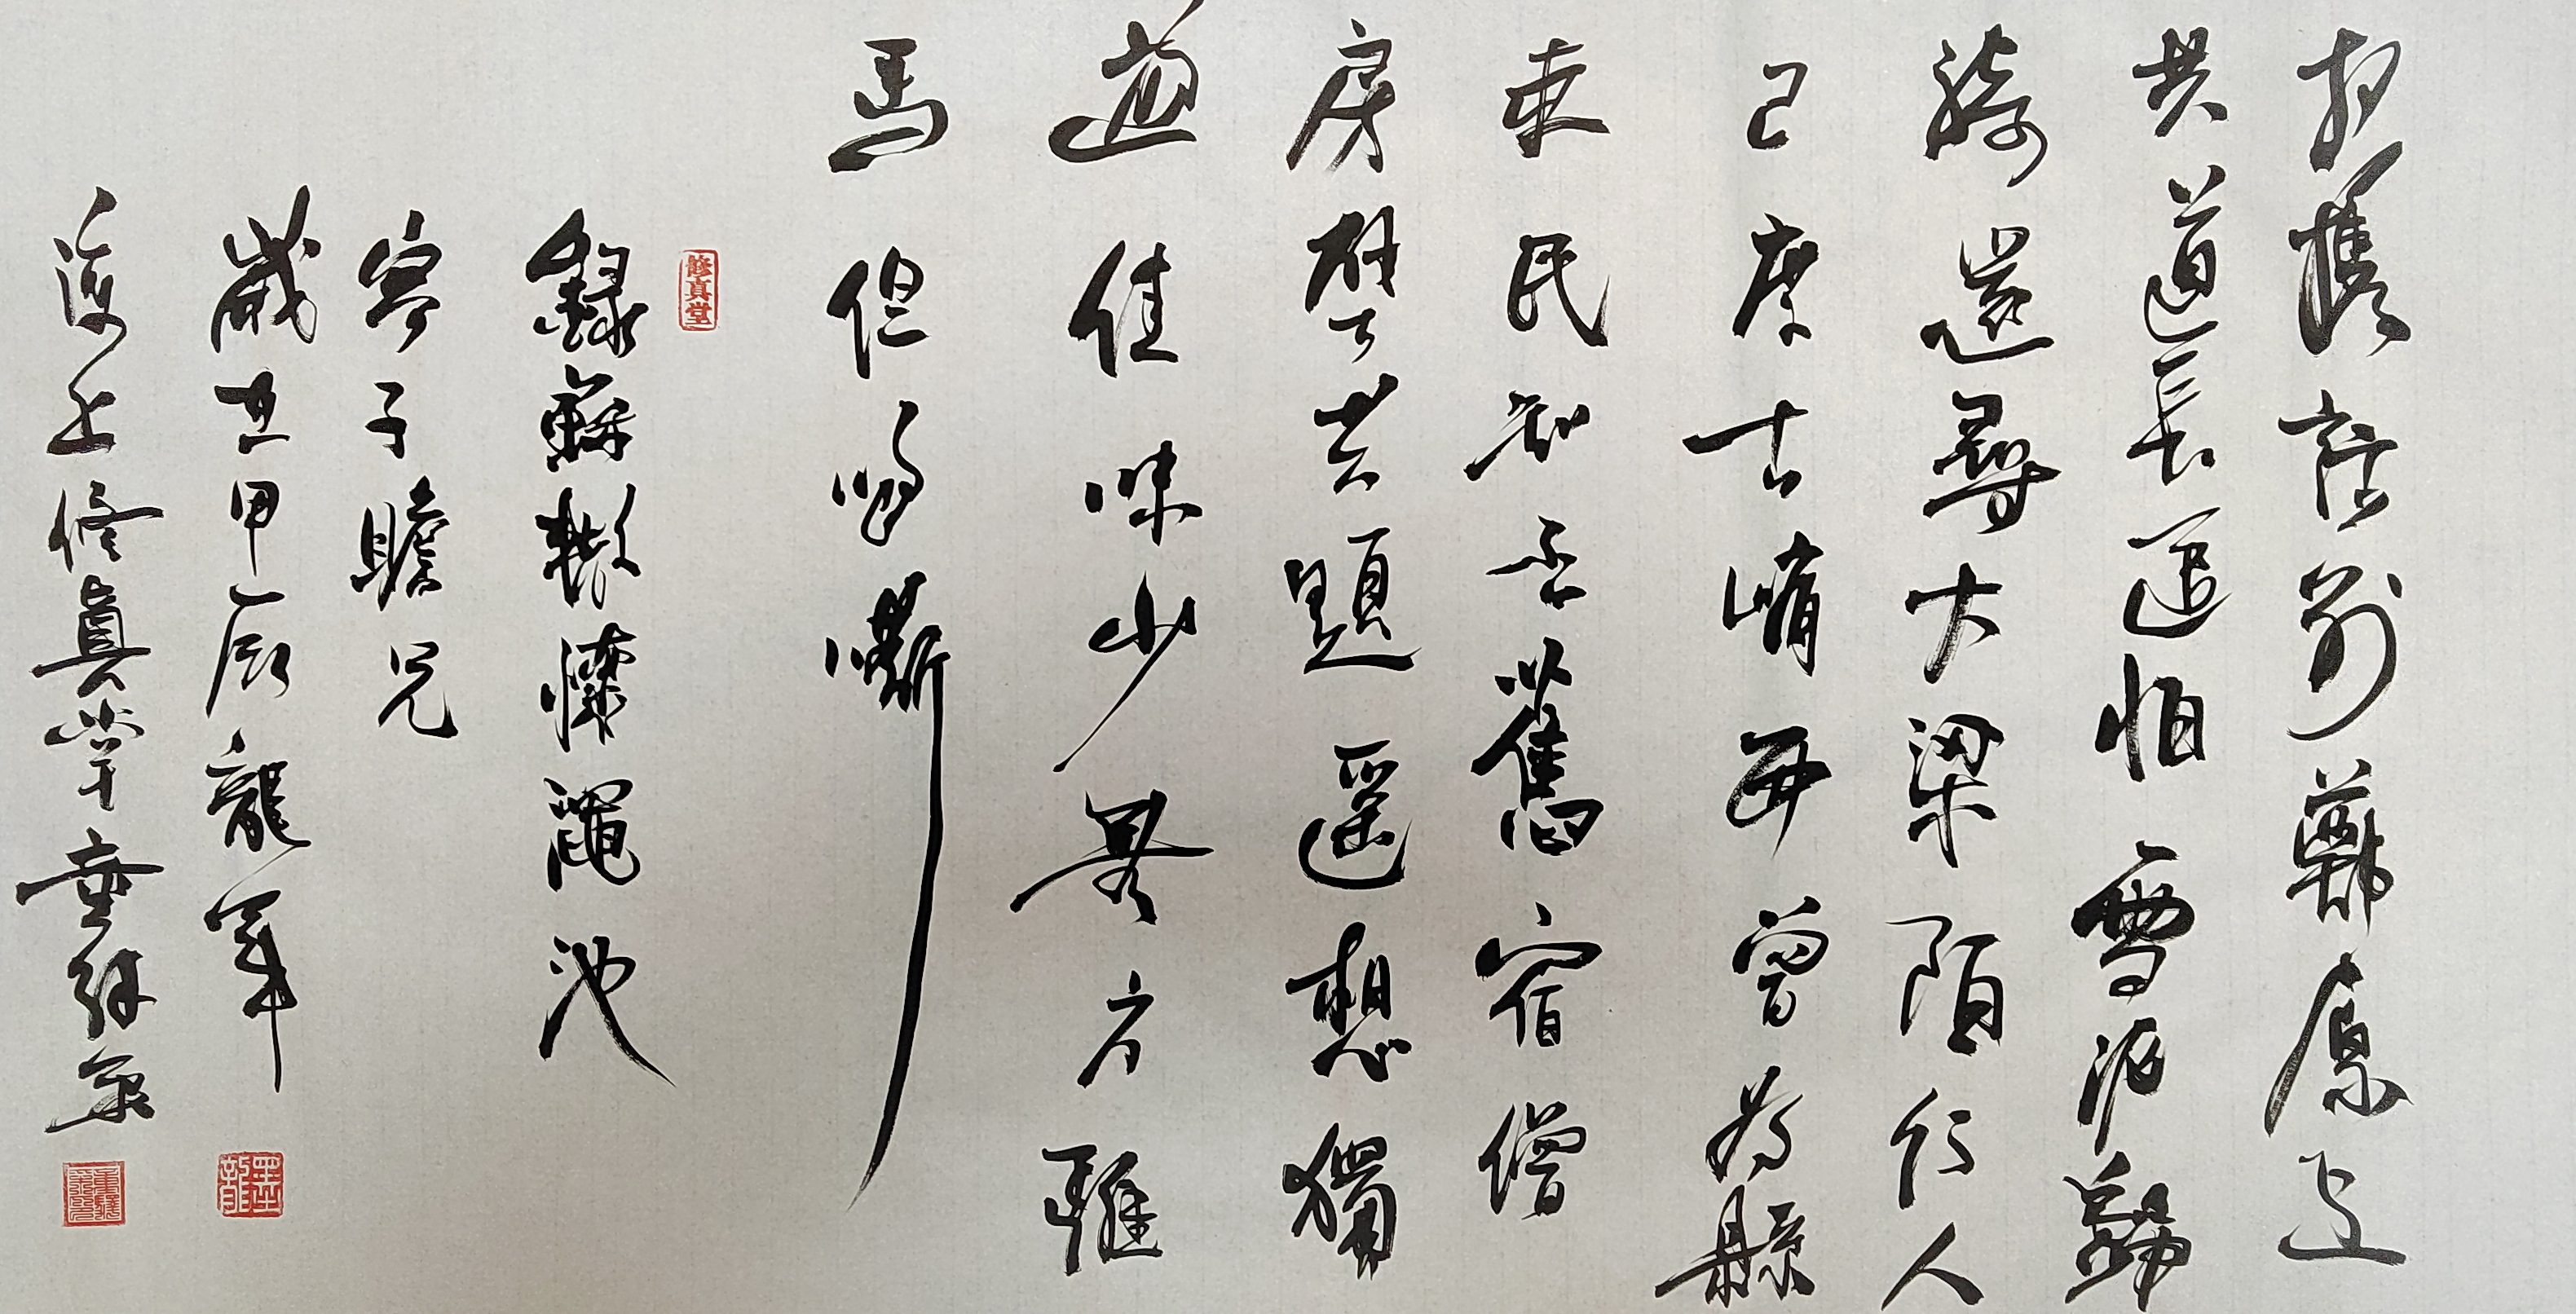 相攜話別鄭原上
共道長途怕雪泥歸
騎還尋大梁陌行人
已度古崤西曾為縣
吏民知否舊宿僧
房壁共題遥想獨
遊佳味少無方騅
馬但鳴嘶
修真堂
錄蘇轍懷澠池
寄子瞻兄
歲在甲辰龍年
墨龍
滬上修真堂童